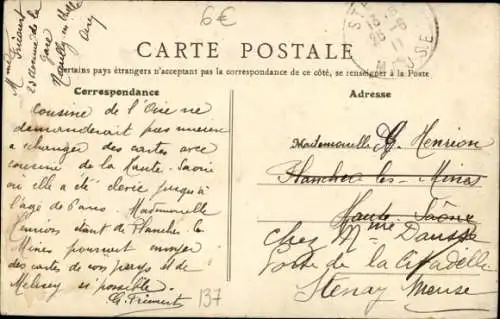 6€
Mme Fricourt
23 avenue de la
Gare
Neuilly en Thelle
CARTE POSTALE
Certains pays étrangers n'acceptant pas la correspondance de ce côté, se renseigner à la Poste
Correspondance
Adresse
cousine de l'Oise ne
demanderait pas mieux
a échanger des cartes avec
cousine de la Haute-Saône
où elle a été élevée jusqu'à
l'age de 6 ans. Mademoiselle
Henrion étant de Plancher-les-
Mines pourrait envoyer
des cartes de son pays et de
Melisey si possible.
G. Fricourt
137
Mademoiselle G. Henrion
Plancher les-Mines
Haute-Saône
chez Mme Dausse
Porte de la Citadelle
Stenay Meuse